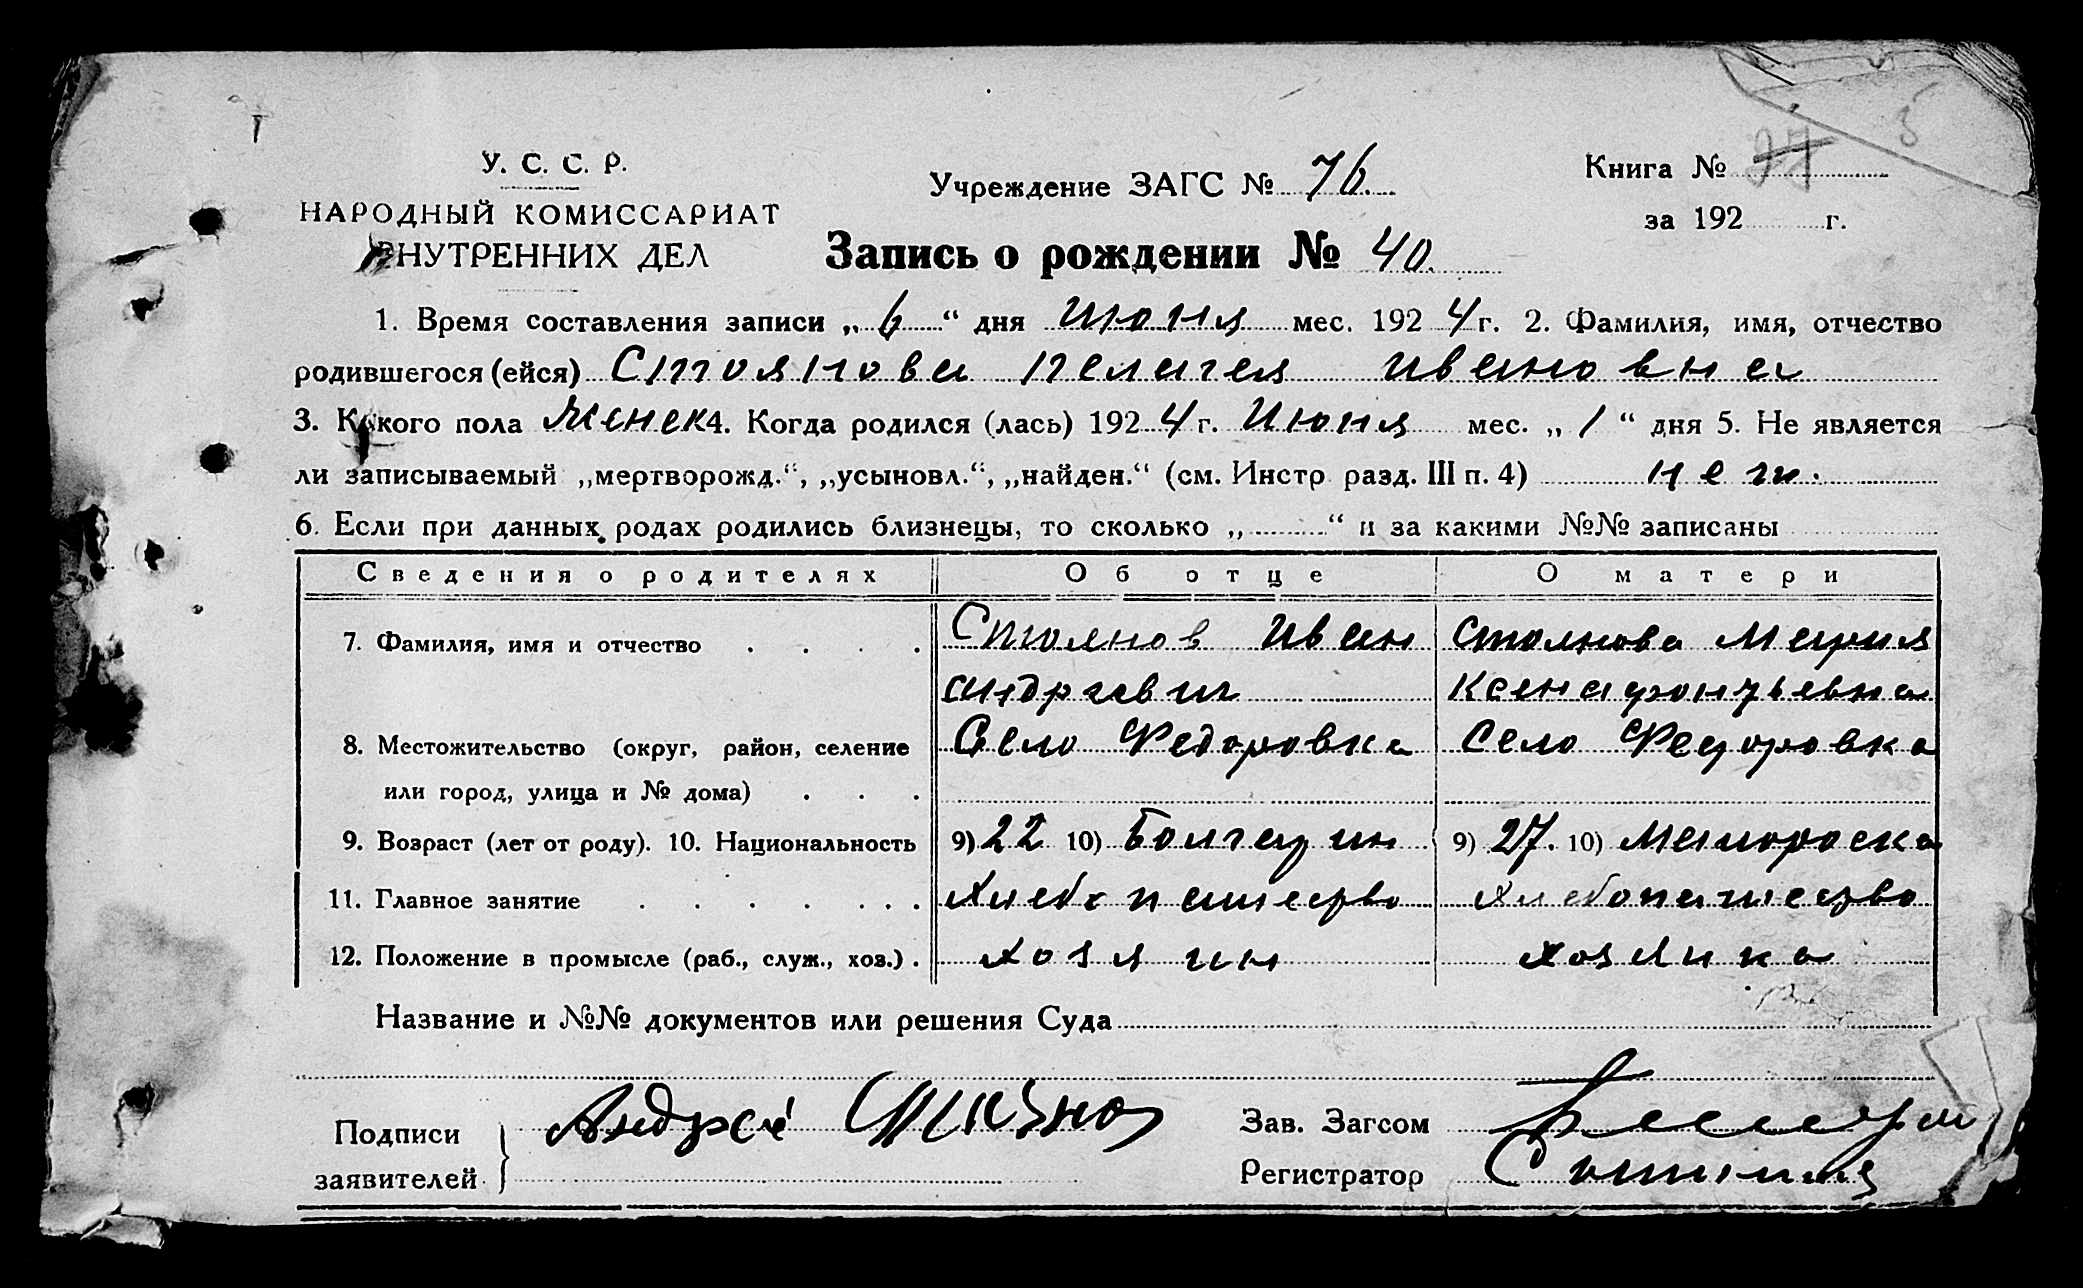 У. С. С. Р.
НАРОДНЫЙ КОМИССАРИАТ
ВНУТРЕННИХ ДЕЛ
Учреждение ЗАГС № 76.
Книга № 27 5
за 192 г.
Запись о рождении № 40.
1. Время составления записи „6“ дня июня мес. 1924 г. 2. Фамилия, имя, отчество
родившегося (ейся) Стоянова Пелагея Ивановна
3. Какого пола женск 4. Когда родился (лась) 1924 г. Июня мес. „1“ дня 5. Не является
ли записываемый „мертворожд.“, „усыновл.“, „найден.“ (см. Инстр разд. III п. 4) нет.
6. Если при данных родах родились близнецы, то сколько „ “ и за какими №№ записаны
Сведения о родителях Об отце О матери
7. Фамилия, имя и отчество . . . . Стоянов Иван Стоянова Мария
андравич Ксенафонтьевна
8. Местожительство (округ, район, селение Село Федоровка Село Федоровка
или город, улица и № дома) . . .
9. Возраст (лет от роду). 10. Национальность 9) 22 10) Болгарин 9) 27. 10) Малороска
11. Главное занятие . . . . . . . Хлебопашество Хлебопашество
12. Положение в промысле (раб., служ., хоз.) . хозяин хозяика
Название и №№ документов или решения Суда
Подписи Андрей Зав. Загсом
заявителей Регистратор